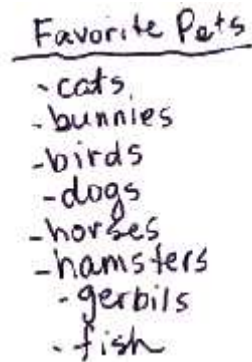 Favorite Pets
- cats
- bunnies
- birds
- dogs
- horses
- hamsters
- gerbils
- fish